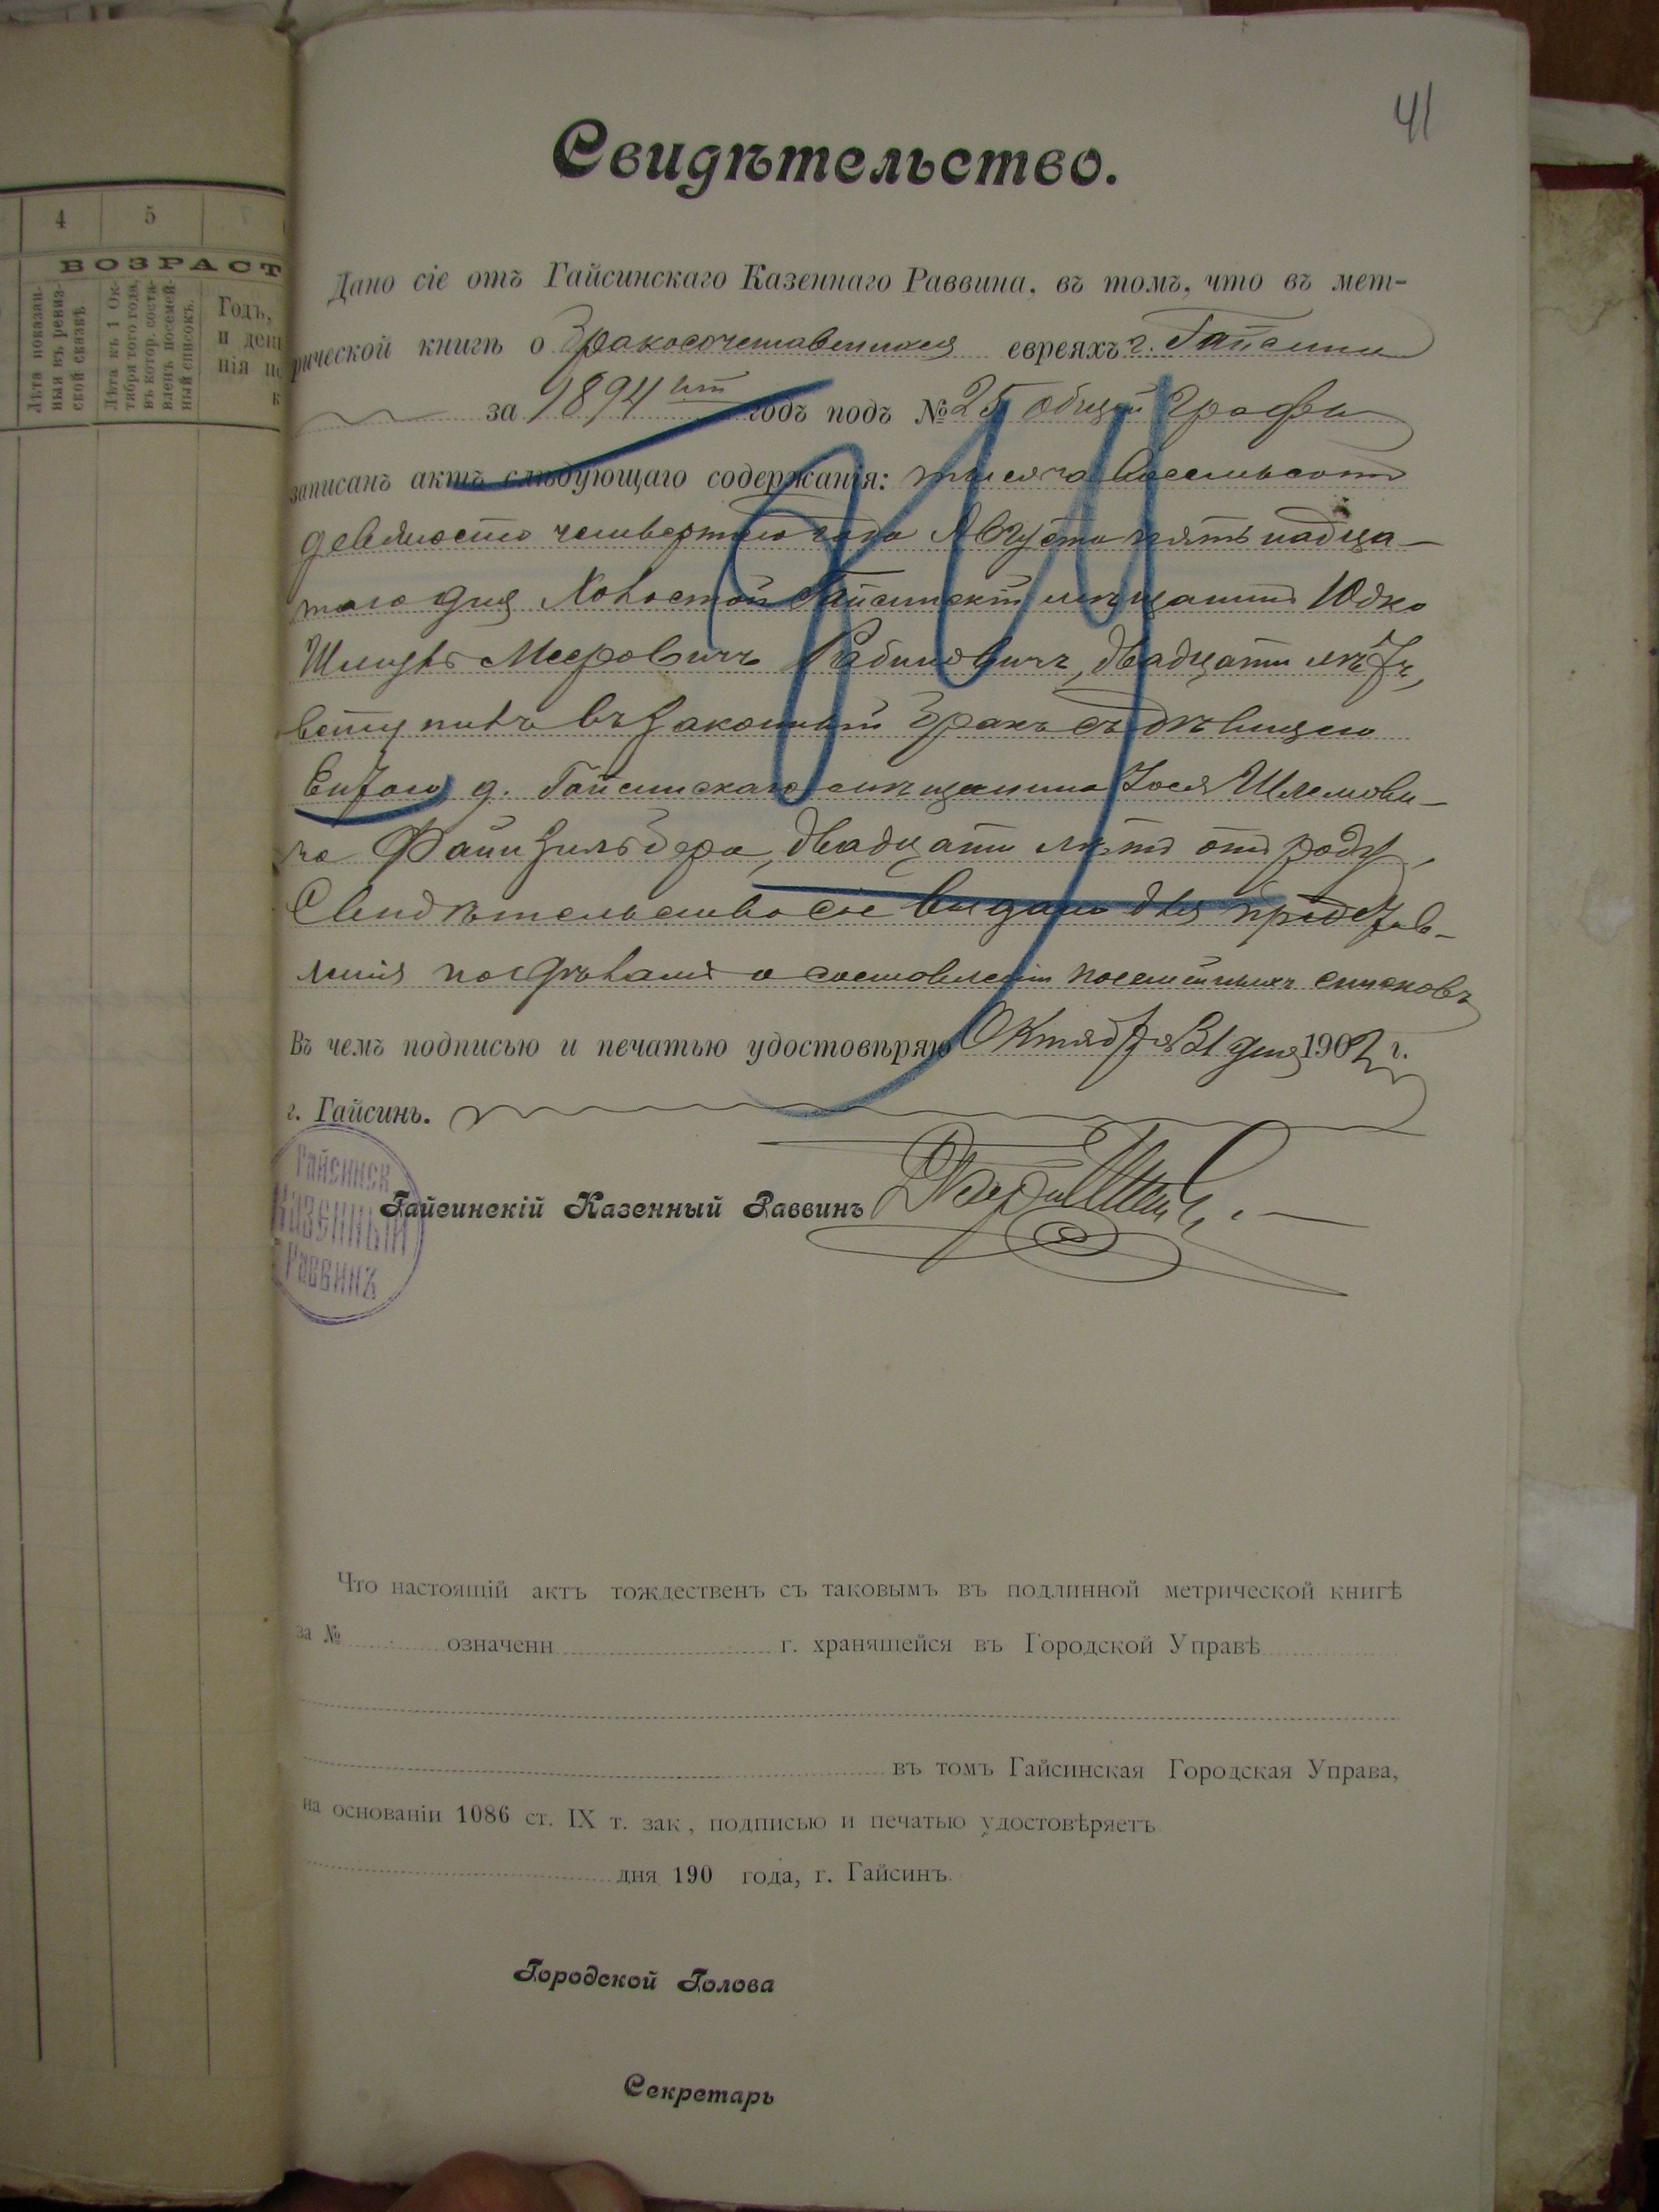 41
4 5
ВОЗРАСТ
Лѣта показан-
ныя въ ревиз-
ской сказкѣ.
Лѣта къ 1 Ок-
тября того года,
въ котор. соста-
вленъ посемей-
ный списокъ.
Годъ,
и ден
нія по
Свидѣтельство.
Дано сіе отъ Гайсинскаго Казеннаго Раввина, въ томъ, что въ мет-
рической книгѣ о бракосочетавшихся евреяхъ г. Гайсина
за 1894 годъ подъ № 25 общей графы
записанъ актъ слѣдующаго содержанія: тысяча восемьсотъ
девяносто четвертаго года Августа пятьнадца-
таго дня Холостой Гайсинскій мѣщанинъ Юдко
Шмуль Мееровичъ Рабиновичъ, двадцати лѣтъ,
вступилъ въ законный бракъ съ дѣвицею
д. Гайсинскаго мѣщанина Іося Шлемови-
ча Файнзильбера, двадцати лѣтъ отъ роду,
Свидѣтельство сіе выдано для представ-
ленія по дѣламъ о составленіи посемейныхъ списковъ
Въ чемъ подписью и печатью удостовѣряю Октября 31 дня 1902 г.
г. Гайсинъ.
Гайсинск
Казенный
Раввинъ
Гайсинскій Казенный Раввинъ
Что настоящій актъ тождественъ съ таковымъ въ подлинной метрической книгѣ
за № означенн г. хранящейся въ Городской Управѣ
въ томъ Гайсинская Городская Управа,
на основаніи 1086 ст. IX т. зак., подписью и печатью удостовѣряетъ
дня 190 года, г. Гайсинъ.
Городской Голова
Секретарь